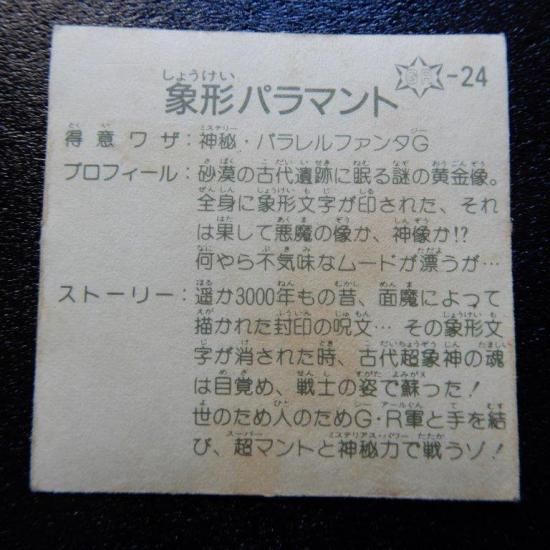 GR-24
象形パラマント
得意ワザ：神秘・パラレルファンタG
プロフィール：砂漠の古代遺跡に眠る謎の黄金像。
全身に象形文字が印された、それ
は果して悪魔の像か、神像か!?
何やら不気味なムードが漂うが…
ストーリー：遥か3000年もの昔、面魔によって
描かれた封印の呪文… その象形文
字が消された時、古代超象神の魂
は目覚め、戦士の姿で蘇った！
世のため人のためG・R軍と手を結
び、超マントと神秘力で戦うゾ！